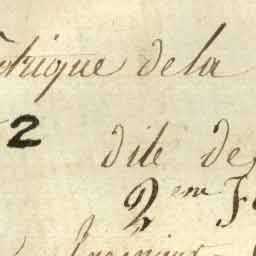 trique de la
2
dite de
2em F